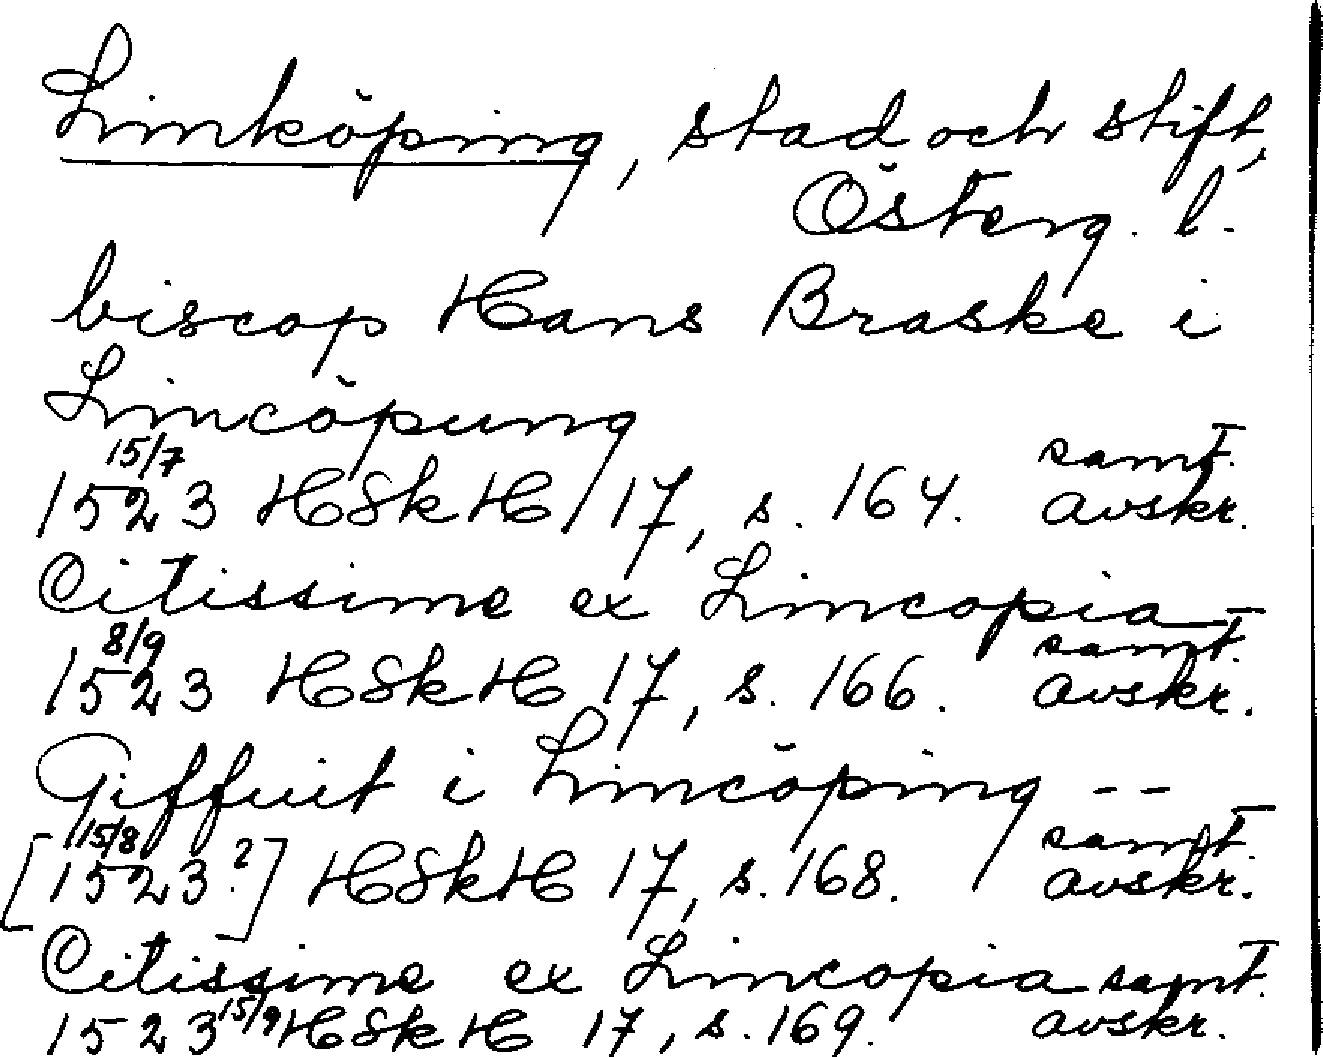 Linköping, stad och stift,
Österg. l.
biscop Hans Braske i
Lincöpung
15/7 samt.
1523 HSkH 17, s. 164. avskr.
Citissime ex Lincopia –
8/9 samt.
1523 HSkH 17, s. 166. avskr.
Giffuit i Lincöping --
15/8 samt.
[1523?] HSkH 17, s. 168. avskr.
Citissime ex Lincopia samt.
1523 15/9 HSkH 17, s. 169. avskr.